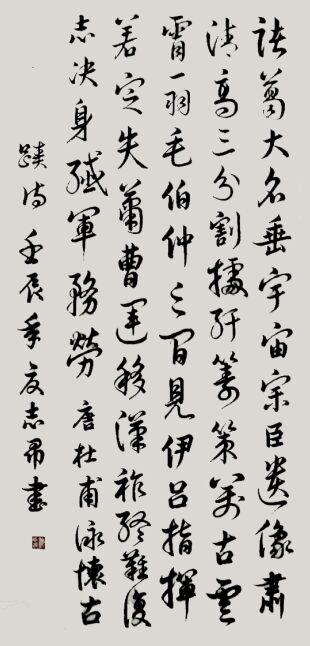 諸葛大名垂宇宙宗臣遺像肅
清高三分割據紆籌策萬古雲
霄一羽毛伯仲之間見伊呂指揮
若定失蕭曹運移漢祚終難復
志決身殲軍務勞 唐杜甫詠懷古
蹟詩 壬辰年 志書